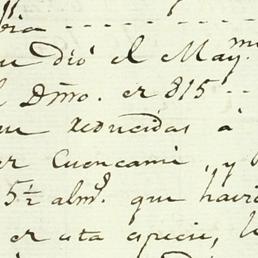 que dió el May.mo
el Dmo. er 815
que reducidas á
er Cuencamé, y
5½ alms. que havia
er esta especie,